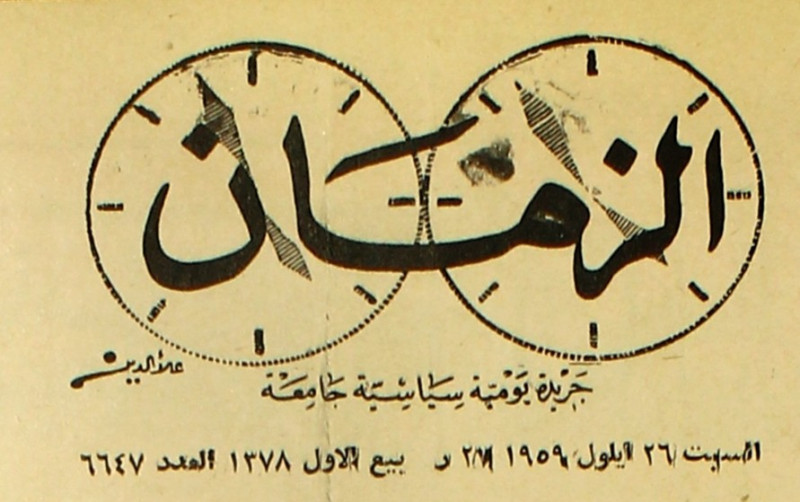 الزمان
علاءالدين
جَريْدة يَوْميّة سِيَاسِيّة جَامِعَة
السبت ٢٦ ايلول ١٩٥٩ ر بيع الاول ١٣٧٨ العدد ٦٦٤٧